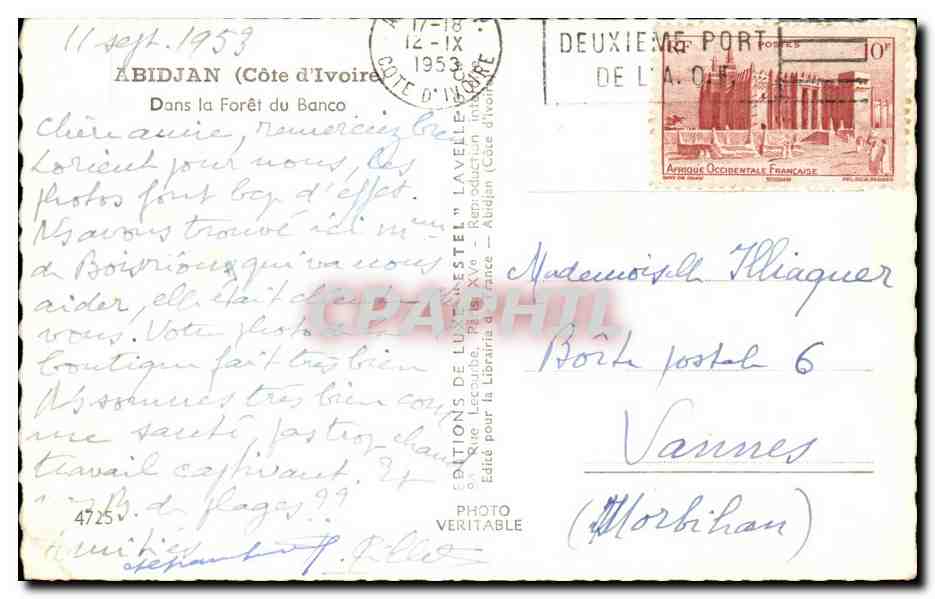 11 sept. 1953
ABIDJAN (Côte d'Ivoire)
Dans la Forêt du Banco
Chère amie, remerciez bien
Lorient pour nous, les
photos font bcp d'effet.
Ns avons trouvé ici Mme
de qui va nous
aider, elle était
vous. Votre photo
boutique fait très bien
Ns sommes très bien com
me santé, pas trop chaud
travail captivant. Et
B. de plages ??
Amitiés
4725
17-18
12-IX
1953
CÔTE D'IVOIRE
DEUXIEME PORT
DE L'A.O.F.
RF POSTES 10F
AFRIQUE OCCIDENTALE FRANÇAISE
SOUDAN
EDITIONS DE LUXE "ESTEL" LAVELLE
Rue Lecourbe, Paris XVe - Reproduction
Edité pour la Librairie de France — Abidjan (Côte d'Ivoire
PHOTO
VERITABLE
CPAPHIL
Mademoiselle Illiaquer
Boîte postale 6
Vannes
(Morbihan)